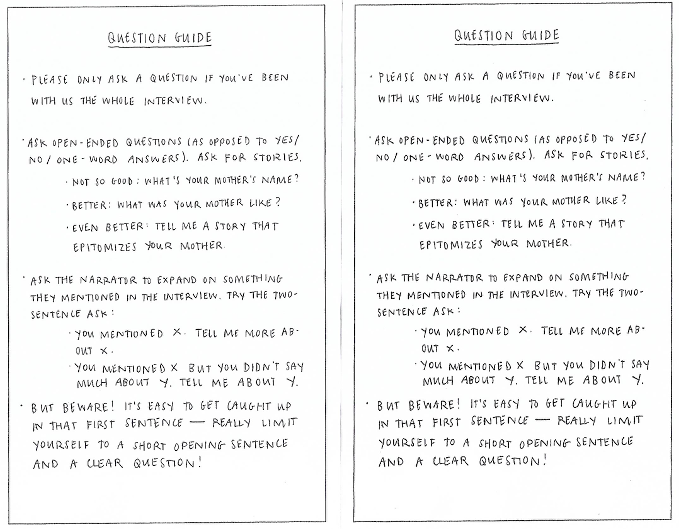 QUESTION GUIDE
· PLEASE ONLY ASK A QUESTION IF YOU'VE BEEN
WITH US THE WHOLE INTERVIEW.
· ASK OPEN-ENDED QUESTIONS (AS OPPOSED TO YES/
NO/ONE-WORD ANSWERS). ASK FOR STORIES.
· NOT SO GOOD: WHAT'S YOUR MOTHER'S NAME?
· BETTER: WHAT WAS YOUR MOTHER LIKE?
· EVEN BETTER: TELL ME A STORY THAT
EPITOMIZES YOUR MOTHER.
· ASK THE NARRATOR TO EXPAND ON SOMETHING
THEY MENTIONED IN THE INTERVIEW. TRY THE TWO-
SENTENCE ASK:
· YOU MENTIONED X. TELL ME MORE AB-
OUT X.
· YOU MENTIONED X BUT YOU DIDN'T SAY
MUCH ABOUT Y. TELL ME ABOUT Y.
· BUT BEWARE! IT'S EASY TO GET CAUGHT UP
IN THAT FIRST SENTENCE — REALLY LIMIT
YOURSELF TO A SHORT OPENING SENTENCE
AND A CLEAR QUESTION!
QUESTION GUIDE
· PLEASE ONLY ASK A QUESTION IF YOU'VE BEEN
WITH US THE WHOLE INTERVIEW.
· ASK OPEN-ENDED QUESTIONS (AS OPPOSED TO YES/
NO/ONE-WORD ANSWERS). ASK FOR STORIES.
· NOT SO GOOD: WHAT'S YOUR MOTHER'S NAME?
· BETTER: WHAT WAS YOUR MOTHER LIKE?
· EVEN BETTER: TELL ME A STORY THAT
EPITOMIZES YOUR MOTHER.
· ASK THE NARRATOR TO EXPAND ON SOMETHING
THEY MENTIONED IN THE INTERVIEW. TRY THE TWO-
SENTENCE ASK:
· YOU MENTIONED X. TELL ME MORE AB-
OUT X.
· YOU MENTIONED X BUT YOU DIDN'T SAY
MUCH ABOUT Y. TELL ME ABOUT Y.
· BUT BEWARE! IT'S EASY TO GET CAUGHT UP
IN THAT FIRST SENTENCE — REALLY LIMIT
YOURSELF TO A SHORT OPENING SENTENCE
AND A CLEAR QUESTION!